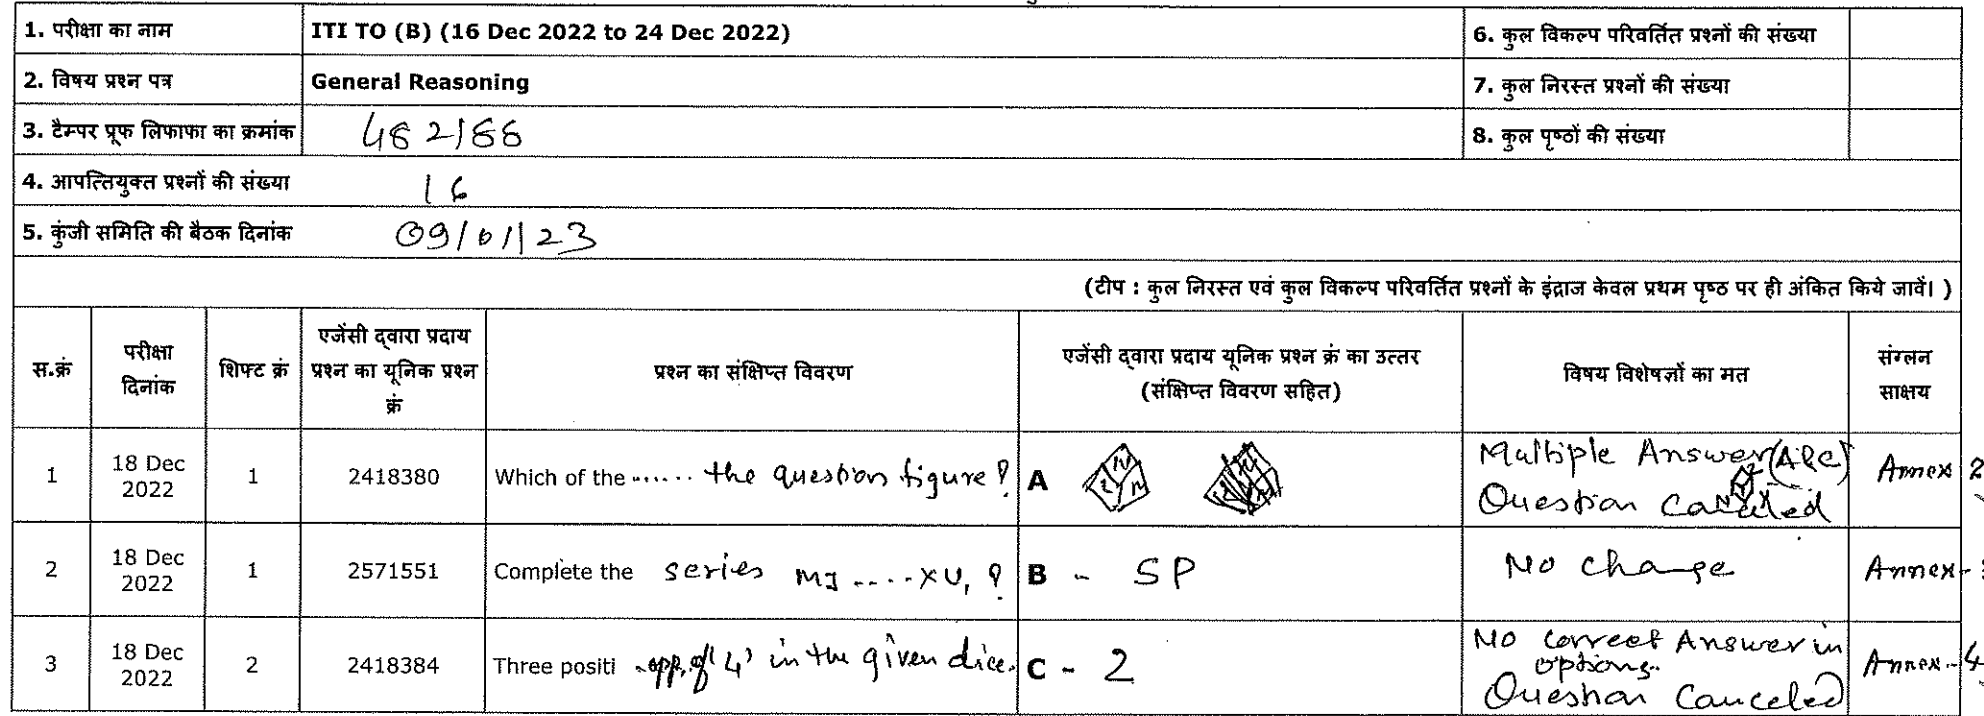 1. परीक्षा का नाम ITI TO (B) (16 Dec 2022 to 24 Dec 2022) 6. कुल विकल्प परिवर्तित प्रश्नों की संख्या
2. विषय प्रश्न पत्र General Reasoning 7. कुल निरस्त प्रश्नों की संख्या
3. टैम्पर प्रूफ लिफाफा का क्रमांक 482188 8. कुल पृष्ठों की संख्या
4. आपत्तियुक्त प्रश्नों की संख्या 16
5. कुंजी समिति की बैठक दिनांक 09/01/23
(टीप : कुल निरस्त एवं कुल विकल्प परिवर्तित प्रश्नों के इंद्राज केवल प्रथम पृष्ठ पर ही अंकित किये जावें। )
स.क्रं
परीक्षा
दिनांक
शिफ्ट क्रं
एजेंसी द्वारा प्रदाय
प्रश्न का यूनिक प्रश्न
क्रं
प्रश्न का संक्षिप्त विवरण
एजेंसी द्वारा प्रदाय यूनिक प्रश्न क्रं का उत्तर
(संक्षिप्त विवरण सहित)
विषय विशेषज्ञों का मत
संग्लन
साक्षय
1
18 Dec
2022
1
2418380
Which of the ...... the question figure?
A
Multiple Answer (A&C)
Question Canceled
Annex 2
2
18 Dec
2022
1
2571551
Complete the series MJ ....XU, ?
B - SP
No change
Annex-
3
18 Dec
2022
2
2418384
Three positi opp. of '4' in the given dice.
C - 2
No correct Answer in
options.
Question Canceled
Annex-4